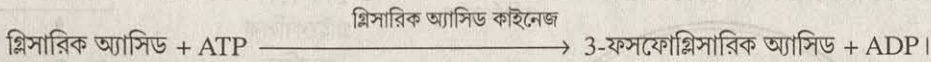 গ্লিসারিক অ্যাসিড কাইনেজ
গ্লিসারিক অ্যাসিড + ATP ⟶ 3-ফসফোগ্লিসারিক অ্যাসিড + ADP।